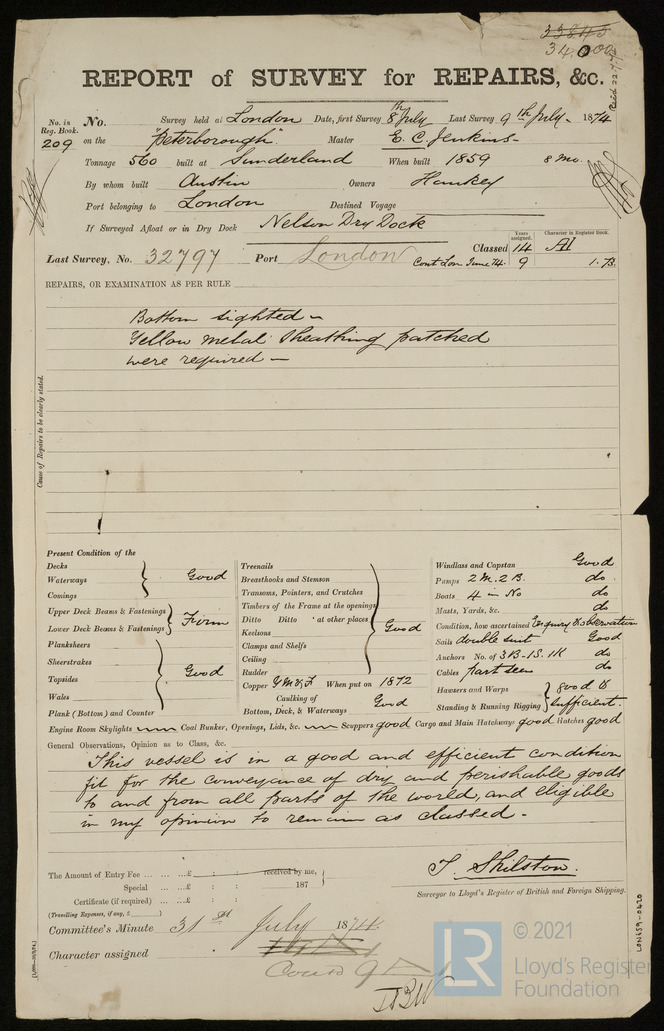 33843
34.000
REPORT of SURVEY for REPAIRS, &c.
No. in Reg. Book. No. Survey held at London Date, first Survey 8th July Last Survey 9th July - 1874
209 on the "Peterborough" Master E. C. Jenkins -
Tonnage 560 built at Sunderland When built 1859 8 Mo.
By whom built Austin Owners Hankey
Port belonging to London Destined Voyage
If Surveyed Afloat or in Dry Dock Nelson Dry Dock
Years assigned. Character in Register Book.
Last Survey, No. 32797 Port London Classed 14 A1
Cont Lon June 74. 9 1.73.
REPAIRS, OR EXAMINATION AS PER RULE
Bottom sighted -
Yellow metal sheathing patched
were required -
Cause of Repairs to be clearly stated.
Present Condition of the
Decks
Waterways
Comings
Good
Upper Deck Beams & Fastenings
Lower Deck Beams & Fastenings
Firm
Planksheers
Sheerstrakes
Topsides
Wales
Good
Plank (Bottom) and Counter
Treenails
Breasthooks and Stemson
Transoms, Pointers, and Crutches
Timbers of the Frame at the openings
Ditto Ditto at other places
Keelsons
Clamps and Shelfs
Ceiling
Rudder
Good
Copper Y M & F When put on 1872
Caulking of
Bottom, Deck, & Waterways Good
Windlass and Capstan Good
Pumps 2 M. 2 B. do.
Boats 4 in No do
Masts, Yards, &c. do
Condition, how ascertained Enquiry & observation
Sails double suit Good
Anchors No. of 3B. 1S. 1K do
Cables part seen do
Hawsers and Warps
Standing & Running Rigging
good & sufficient.
Engine Room Skylights Coal Bunker, Openings, Lids, &c. Scuppers good Cargo and Main Hatchways good Hatches good
General Observations, Opinion as to Class, &c.
This vessel is in a good and efficient condition
fit for the conveyance of dry and perishable goods
to and from all parts of the world, and eligible
in my opinion to remain as classed -
The Amount of Entry Fee ... ... £ : : received by me,
Special ... ... £ : : 187
Certificate (if required) ... ... £ : :
(Travelling Expenses, if any, £ )
T Skilston.
Surveyor to Lloyd's Register of British and Foreign Shipping.
Committee's Minute 31st July 1874.
Character assigned
Cont'd 9
LON659-0420
© 2021
LR
Lloyd's Register
Foundation